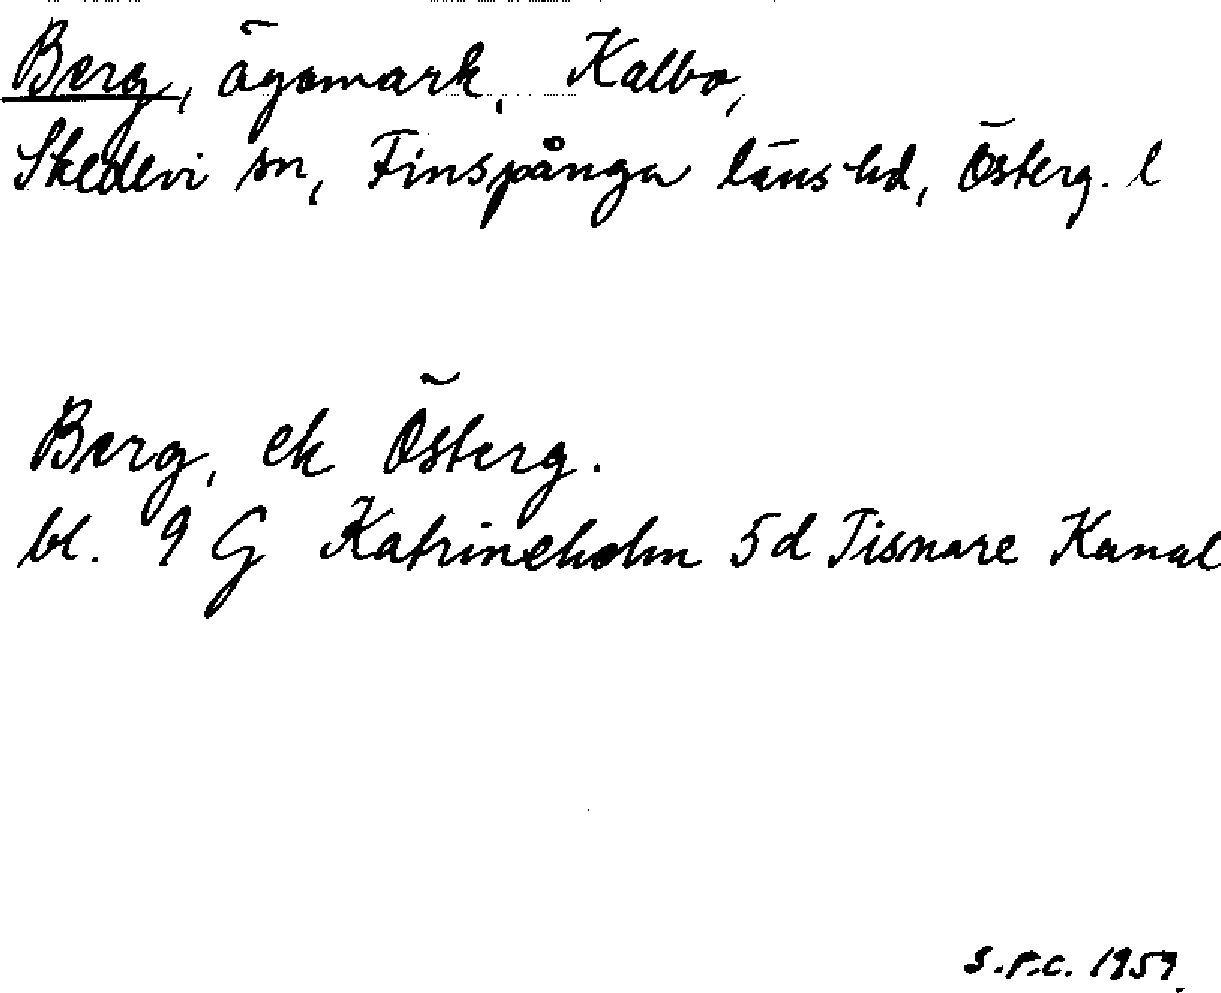 Berg, ägomark, Kalbo,
Skedevi sn, Finspånga läns hd, Österg. l
Berg, ek Österg.
bl. 9 G Katrineholm 5d Tisnare Kanal
S.P.C. 1959.